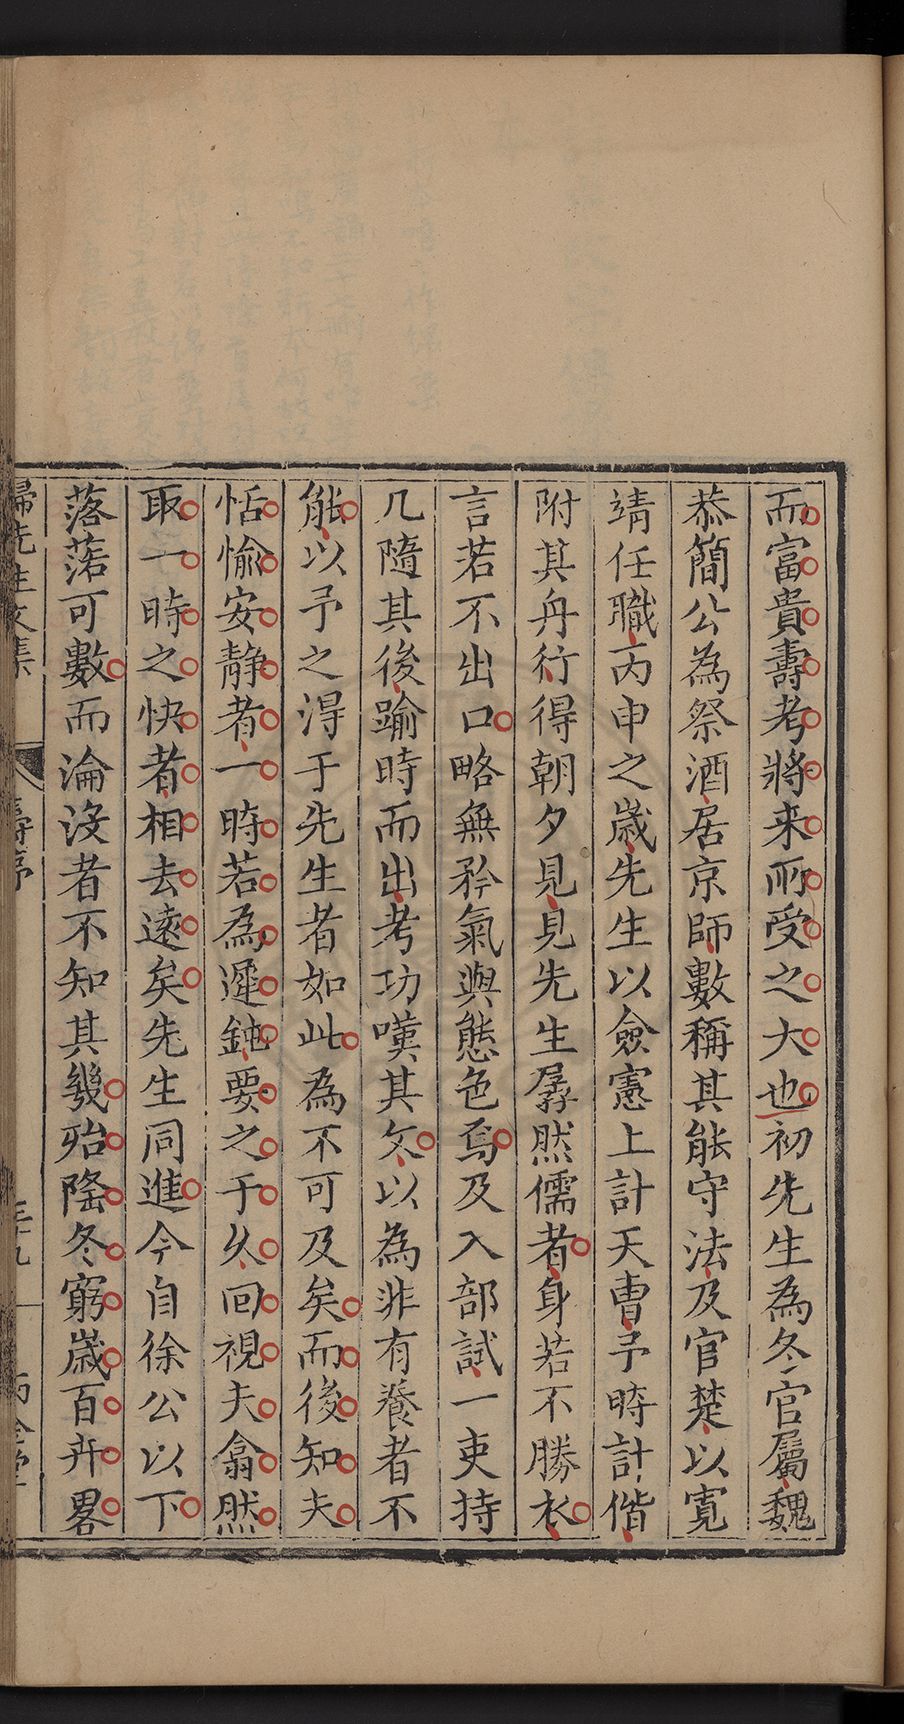 而富貴壽考將来所受之大也初先生為冬官屬魏
恭簡公為祭酒居京師數稱其能守法及官楚以寬
靖任職丙申之歲先生以僉憲上計天曹予時計偕
附其舟行得朝夕見見先生孱然儒者身若不勝衣
言若不出口略無矜氣與態色焉及入部試一吏持
几隨其後踰時而出考功嘆其文以為非有養者不
能以予之得于先生者如此為不可及矣而後知夫
恬愉安静者一時若為遲鈍要之于久回視夫翕然
取一時之快者相去遠矣先生同進今自徐公以下
落落可數而淪沒者不知其幾殆隆冬窮歲百卉畧
歸先生文集 壽序